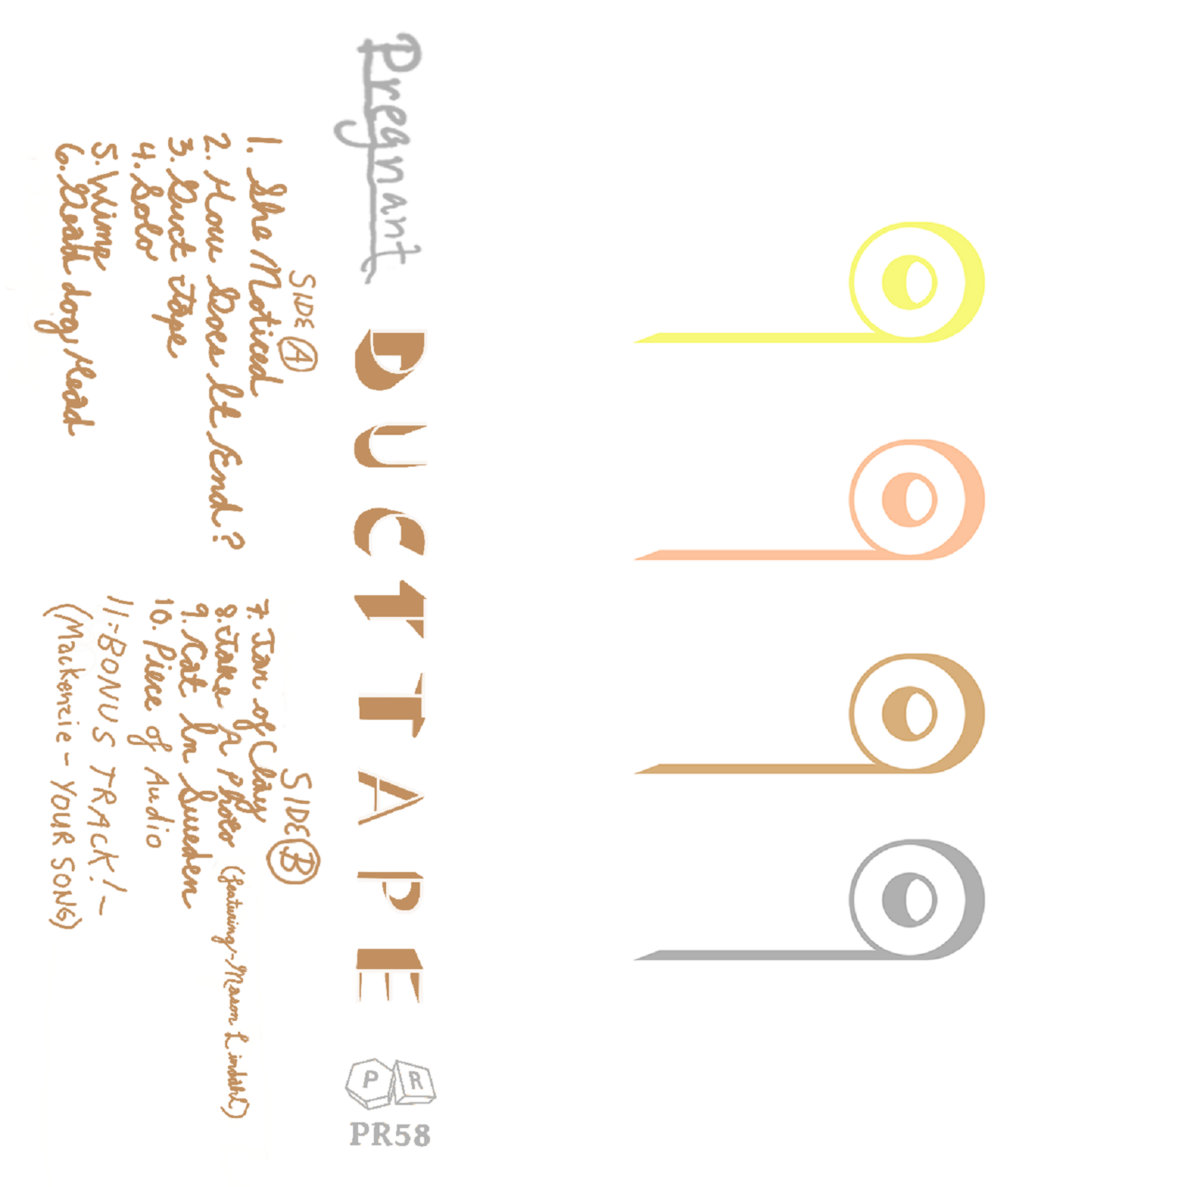 Pregnant
DUCT TAPE
P R
PR58
SIDE A
1. She Noticed
2. How Does It End?
3. Duct Tape
4. Solo
5. Wime
6. Dead dog Head
SIDE B
7. Jar of Clay
8. Take A Photo (featuring - Mason Lindahl)
9. Cat In Sweden
10. Piece of Audio
11 = BONUS TRACK! -
(Mackenzie - YOUR SONG)